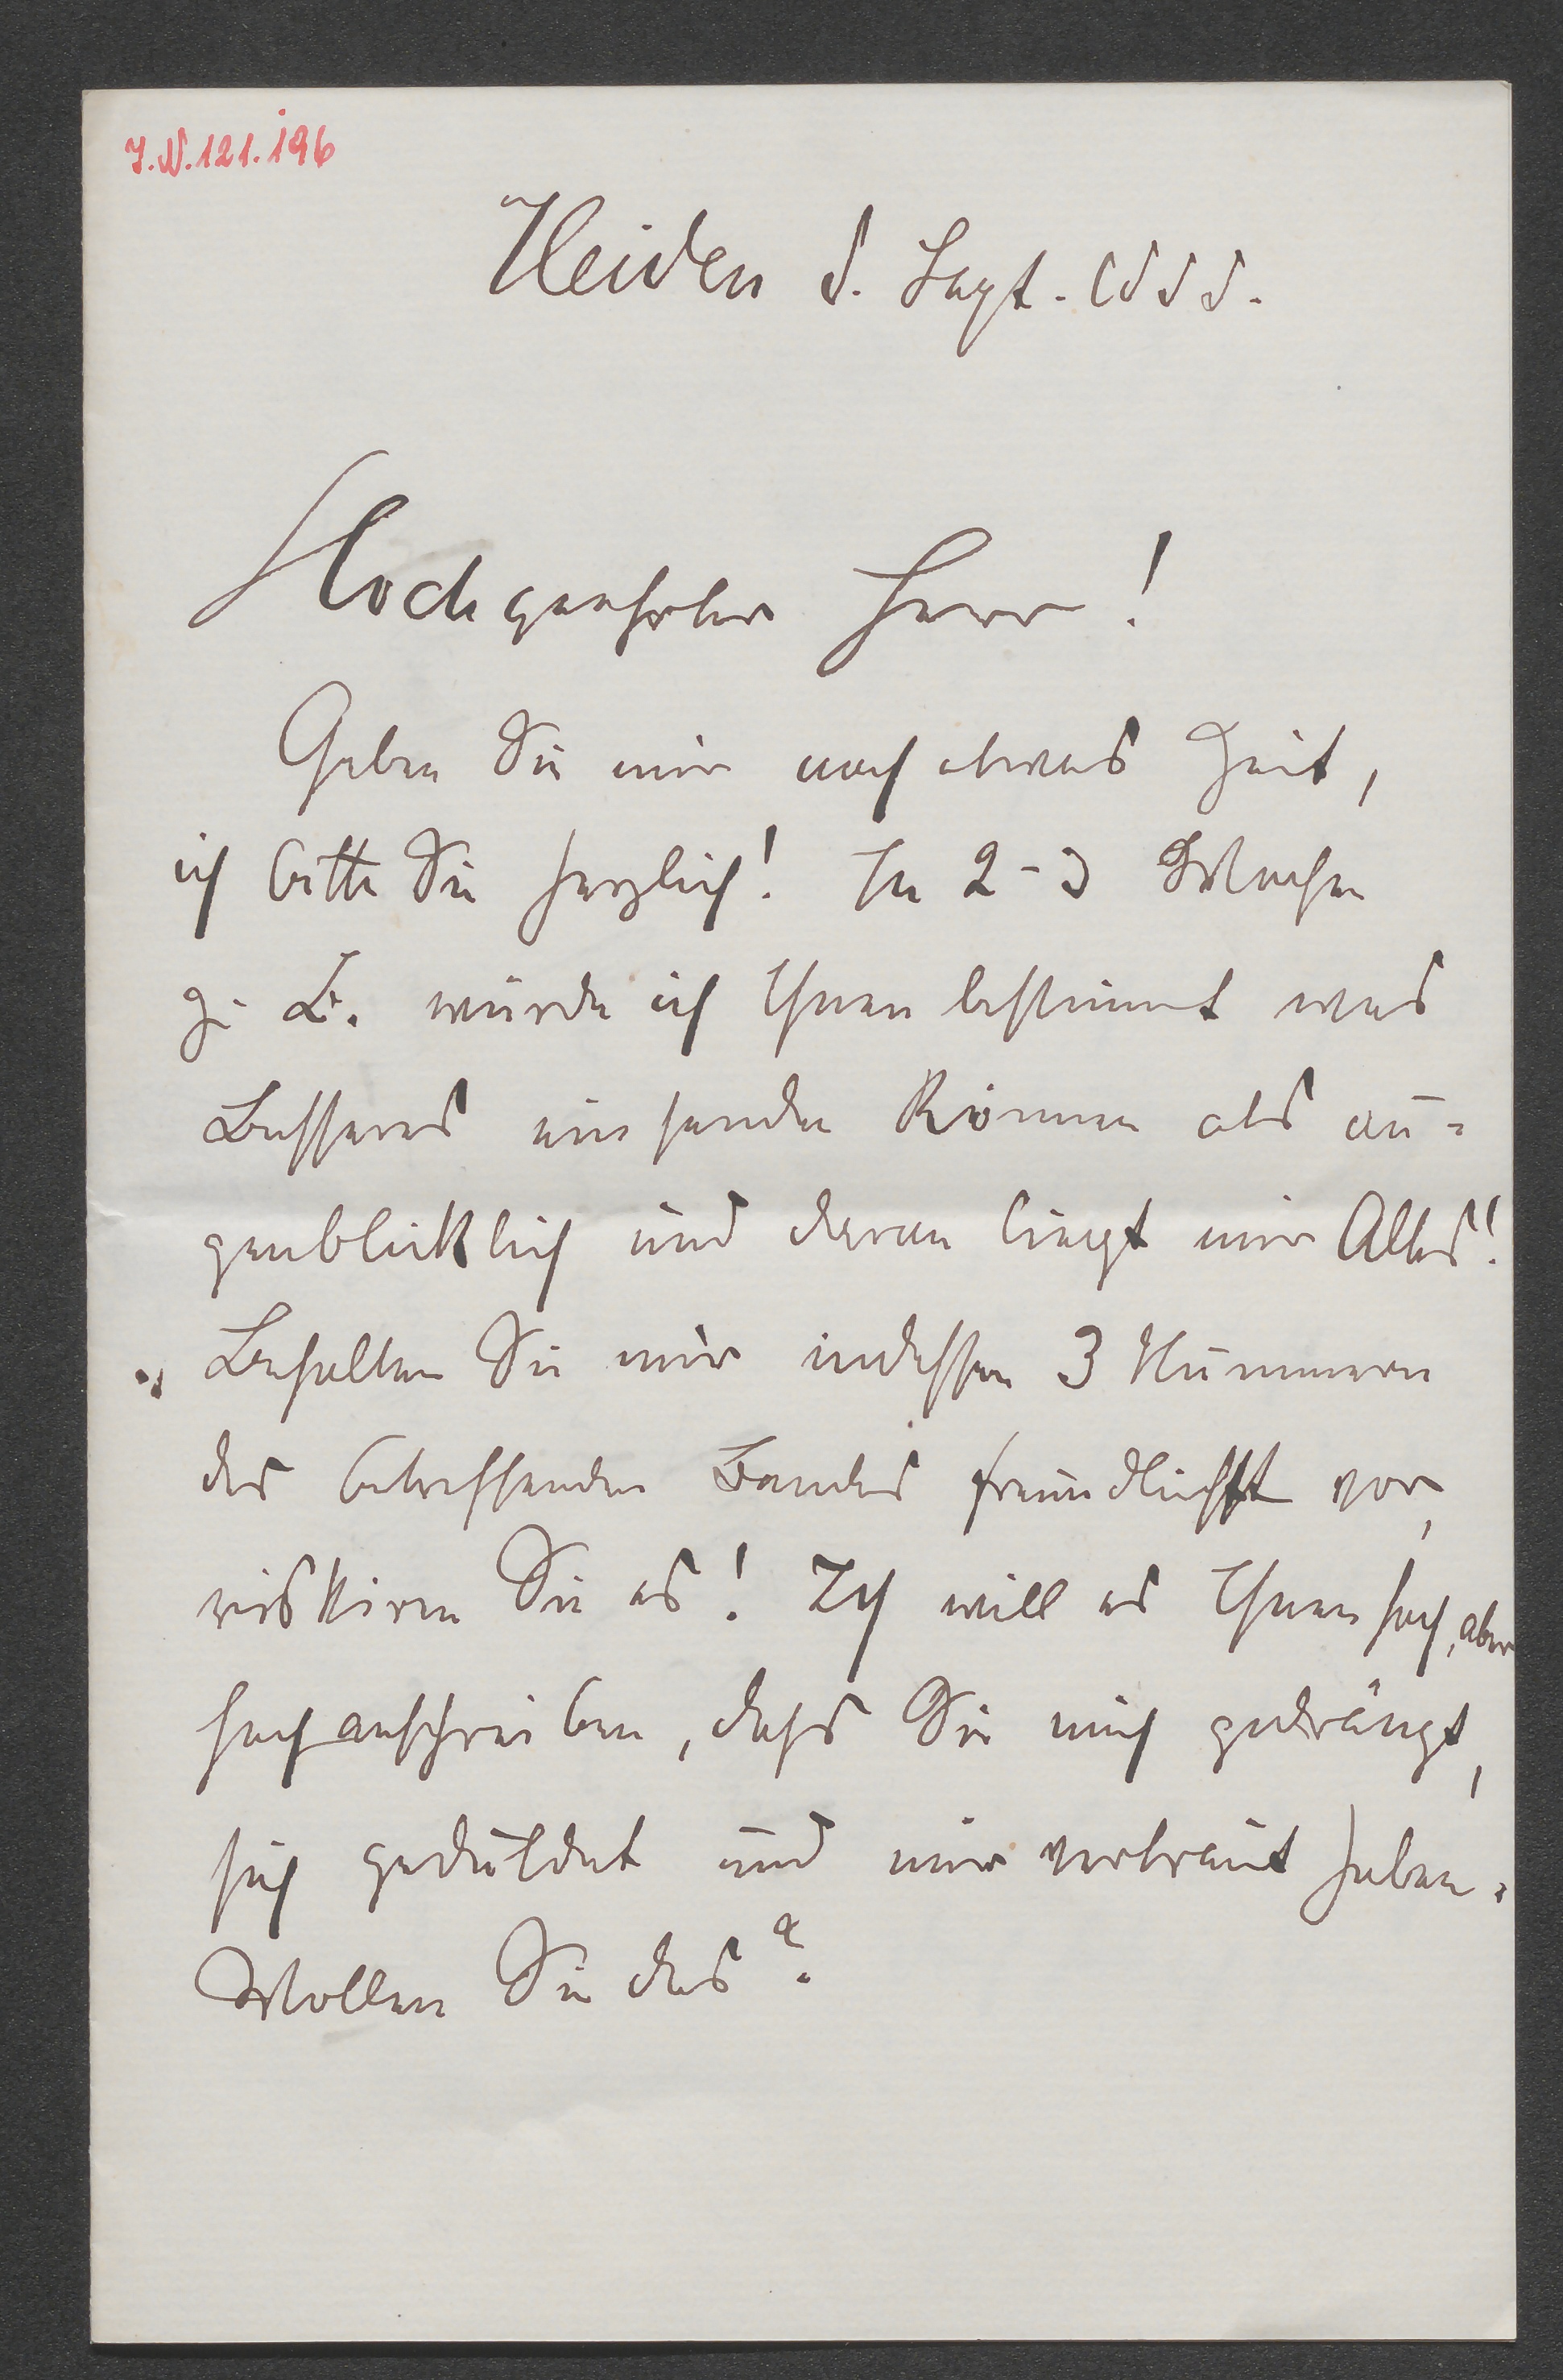 J.N. 121.196
Heiden 8. Sept. 1888.
Hochgeehrter Herr!
Geben Sie mir noch etwas Zeit,
ich bitte Sie herzlich! In 2-3 Wochen
z. B. würde ich Ihnen bestimmt was
Besseres einsenden können als au=
genblicklich und daran liegt mir Alles!
Behalten Sie mir indessen 3 Nummern
des betreffenden Bandes freundlichst vor,
riskiren Sie es! Ich will es Ihnen hoch, aber
hoch anschreiben, dass Sie mich gedrängt,
sich geduldet und mir vertraut haben.
Wollen Sie das?